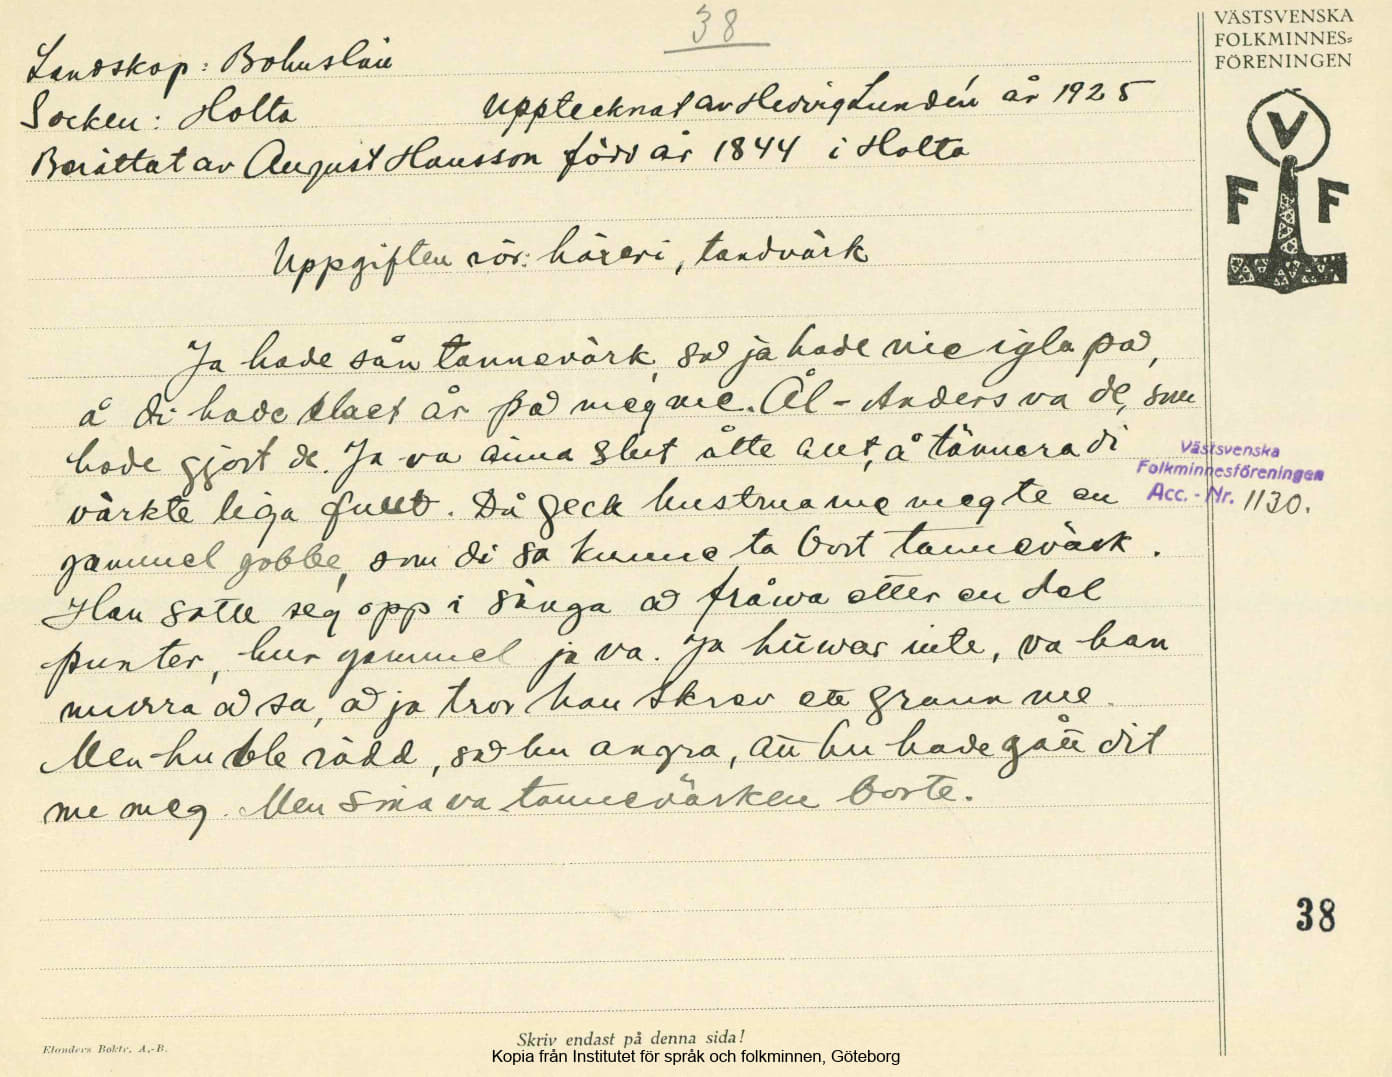 38
VÄSTSVENSKA
FOLKMINNES=
FÖRENINGEN
V
F F
Landskap: Bohuslän
Socken: Holta Upptecknat av Hedvig Lundén år 1925
Berättat av August Hansson född år 1844 i Holta
Uppgiften rör: häxeri, tandvärk
Ja hade sån tannevärk, så ja hade nie igla på,
å di hade slaet år på meg me. Ål-Anders va de, som
hade gjort de. Ja va ainna slut åtte aut, å tännara di
värkte liga fullt. Då geck hustrua me meg te en
gammel gobbe, som di sa kunne ta bort tannevärk.
Han satte seg opp i sänga å fråwa etter en del
punter, hur gammel ja va. Ja huwar inte, va han
murra å sa, å ja tror han skrev ett grann me.
Men hu ble rädd, så hu angra, att hu hade gått dit
me meg. Men sina va tannevärken borte.
Västsvenska
Folkminnesföreningen
Acc.-Nr. 1130.
38
Elanders Boktr. A.-B.
Skriv endast på denna sida!
Kopia från Institutet för språk och folkminnen, Göteborg